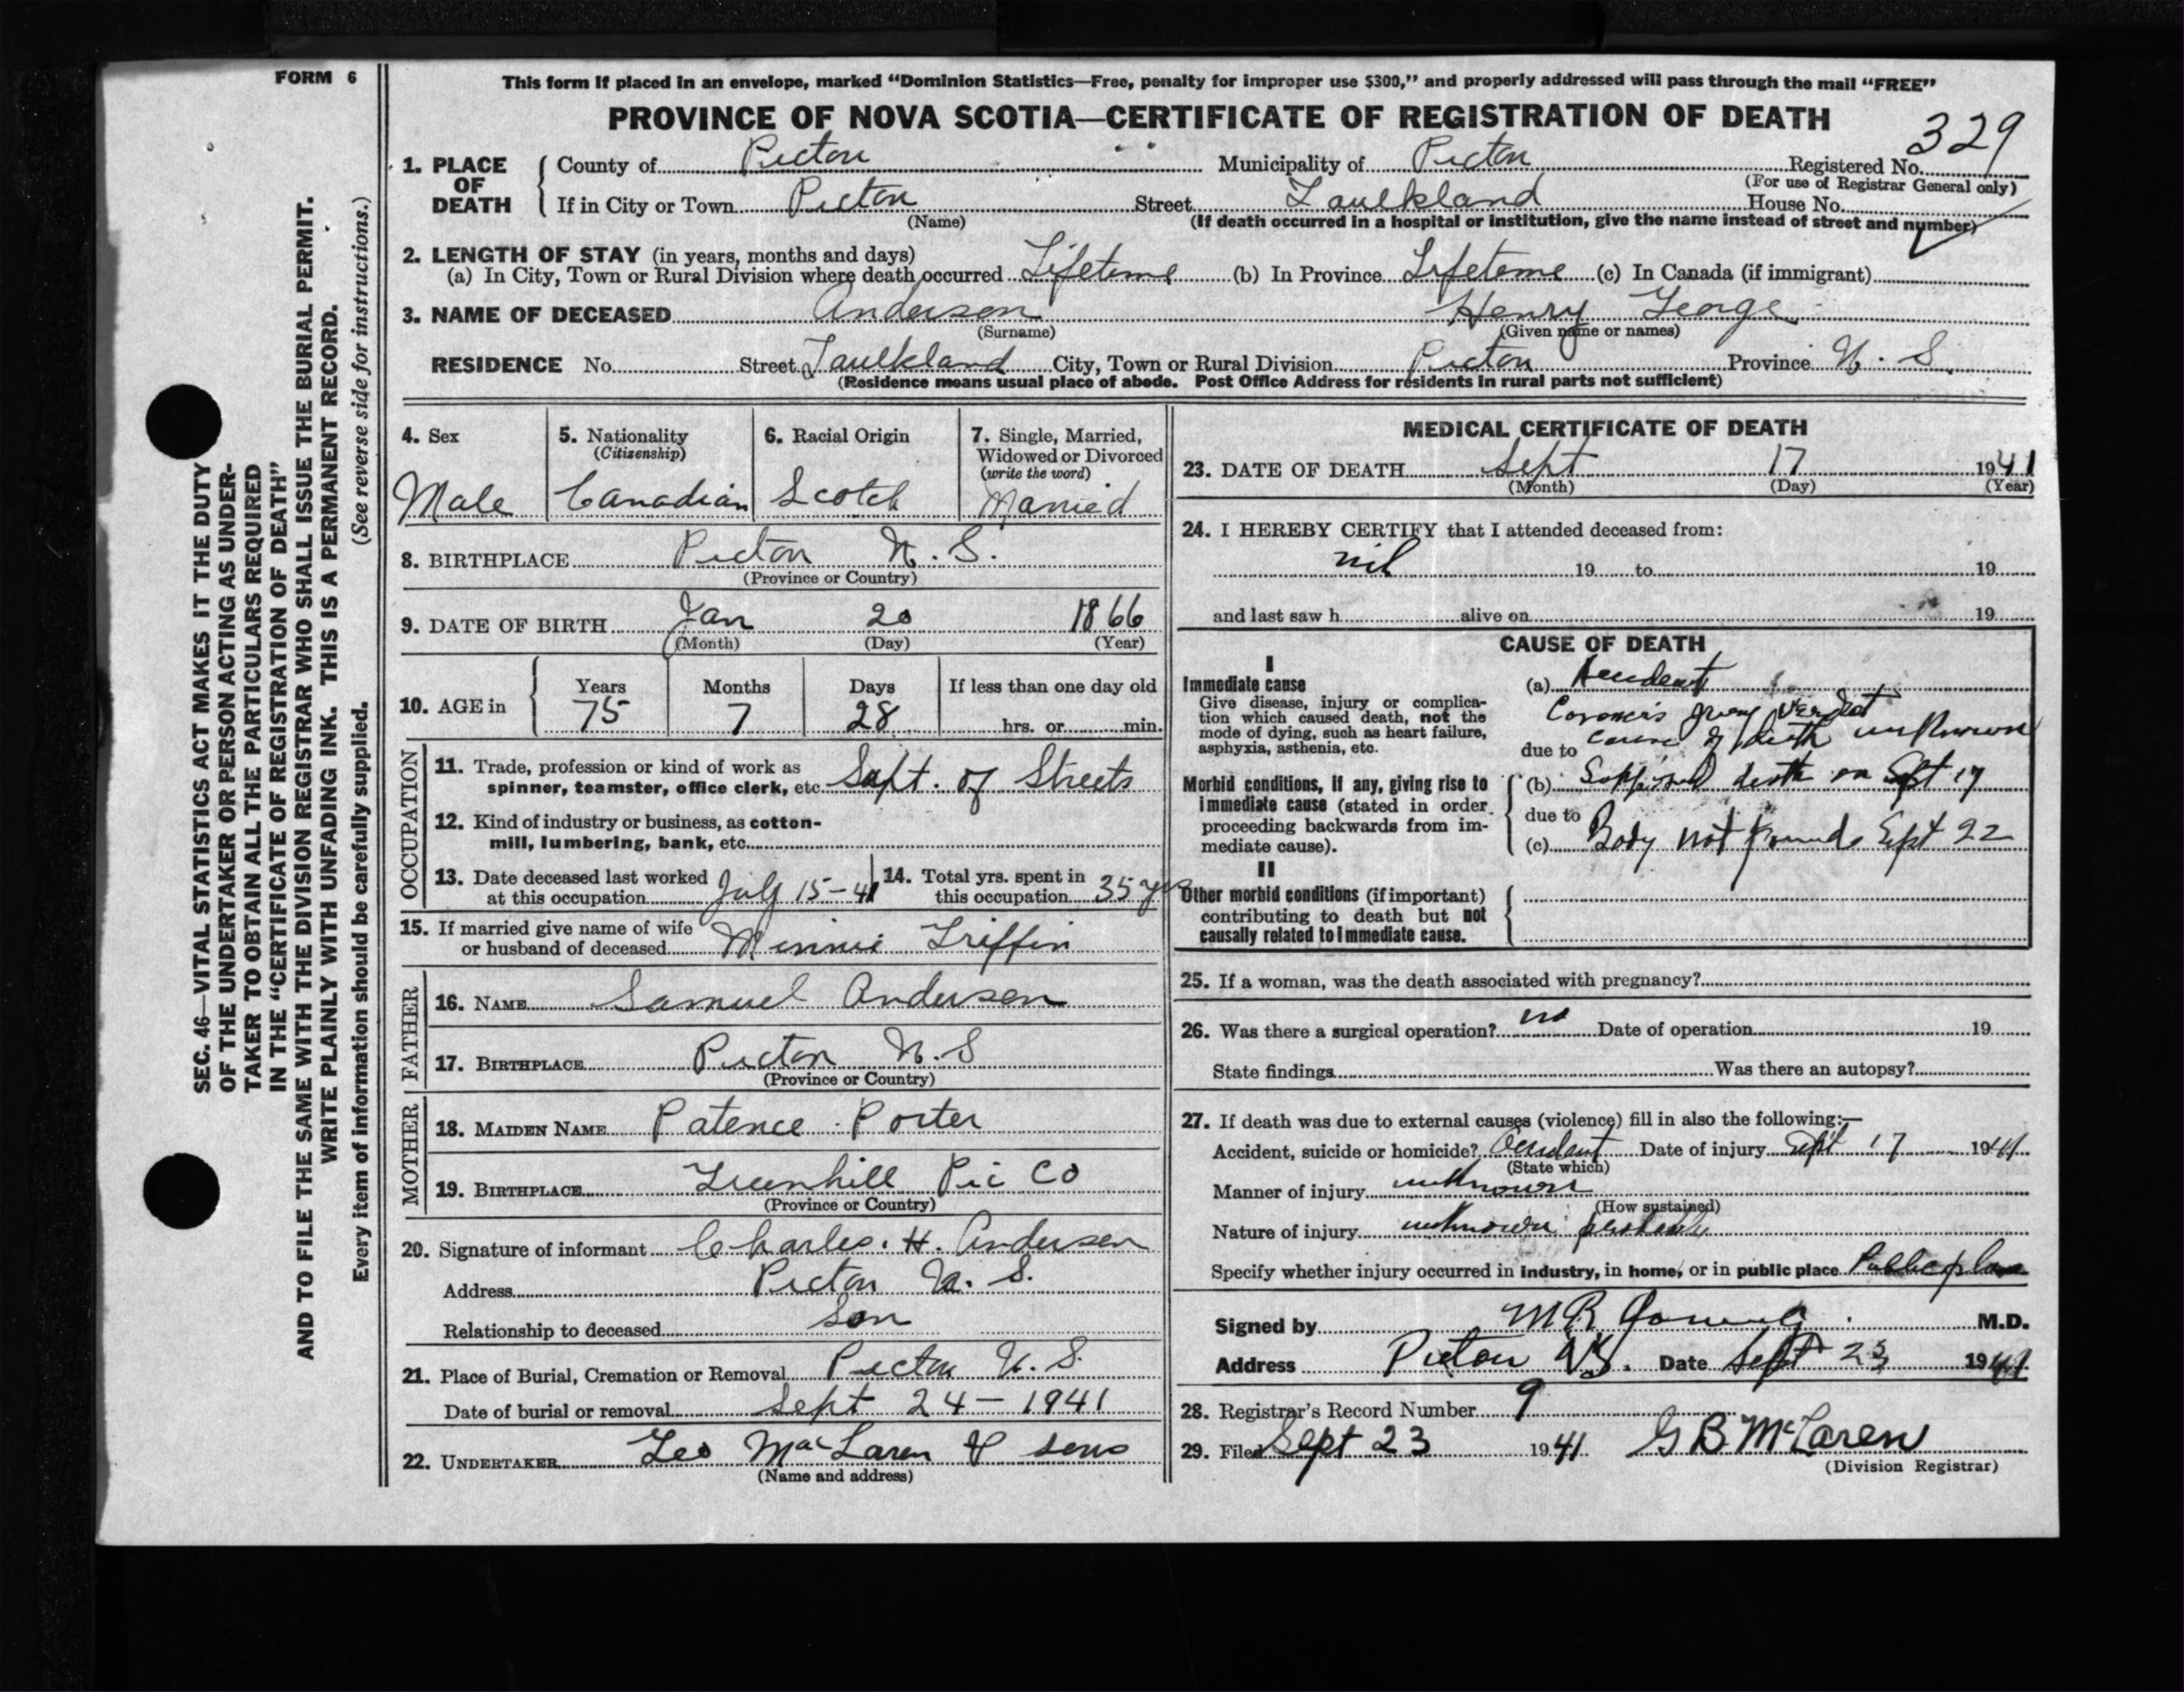 FORM 6
This form if placed in an envelope, marked “Dominion Statistics—Free, penalty for improper use $300,” and properly addressed will pass through the mail “FREE”
PROVINCE OF NOVA SCOTIA—CERTIFICATE OF REGISTRATION OF DEATH
329
1. PLACE OF DEATH County of Pictou Municipality of Pictou Registered No.
(For use of Registrar General only)
If in City or Town Pictou Street Faulkland House No.
(Name) (If death occurred in a hospital or institution, give the name instead of street and number)
2. LENGTH OF STAY (in years, months and days)
(a) In City, Town or Rural Division where death occurred Lifetime (b) In Province Lifetime (c) In Canada (if immigrant)
3. NAME OF DECEASED Anderson Henry George
(Surname) (Given name or names)
RESIDENCE No. Street Faulkland City, Town or Rural Division Pictou Province N. S.
(Residence means usual place of abode. Post Office Address for residents in rural parts not sufficient)
4. Sex 5. Nationality (Citizenship) 6. Racial Origin 7. Single, Married, Widowed or Divorced (write the word)
Male Canadian Scotch Married
8. BIRTHPLACE Pictou N. S.
(Province or Country)
9. DATE OF BIRTH Jan 20 1866
(Month) (Day) (Year)
10. AGE in Years Months Days If less than one day old
75 7 28 hrs. or min.
OCCUPATION
11. Trade, profession or kind of work as
spinner, teamster, office clerk, etc. Supt. of Streets
12. Kind of industry or business, as cotton-
mill, lumbering, bank, etc.
13. Date deceased last worked at this occupation July 15-41 14. Total yrs. spent in this occupation 35 yrs
15. If married give name of wife
or husband of deceased Minnie Griffin
FATHER
16. NAME Samuel Anderson
17. BIRTHPLACE Pictou N. S
(Province or Country)
MOTHER
18. MAIDEN NAME Patence Porter
19. BIRTHPLACE Greenhill Pic Co
(Province or Country)
20. Signature of informant Charles. H. Anderson
Address Pictou N. S.
Relationship to deceased Son
21. Place of Burial, Cremation or Removal Pictou N. S.
Date of burial or removal Sept 24 - 1941
22. UNDERTAKER Geo MacLaren & sons
(Name and address)
MEDICAL CERTIFICATE OF DEATH
23. DATE OF DEATH Sept 17 1941
(Month) (Day) (Year)
24. I HEREBY CERTIFY that I attended deceased from:
nil 19 to 19
and last saw h alive on 19
CAUSE OF DEATH
I
Immediate cause
Give disease, injury or complica-
tion which caused death, not the
mode of dying, such as heart failure,
asphyxia, asthenia, etc.
(a) Accident
Coroner's jury verdict
due to cause of death unknown
Morbid conditions, if any, giving rise to
immediate cause (stated in order
proceeding backwards from im-
mediate cause).
(b) Supposed death on Sept 17
due to
(c) Body not found Sept 22
II
Other morbid conditions (if important)
contributing to death but not
causally related to immediate cause.
25. If a woman, was the death associated with pregnancy?
26. Was there a surgical operation? no Date of operation 19
State findings Was there an autopsy?
27. If death was due to external causes (violence) fill in also the following:—
Accident, suicide or homicide? Accident Date of injury Sept 17 1941
(State which)
Manner of injury unknown
(How sustained)
Nature of injury unknown probably
Specify whether injury occurred in industry, in home, or in public place Public place
Signed by M R Young M.D.
Address Pictou NS. Date Sept 23 1941
28. Registrar's Record Number 9
29. Filed Sept 23 1941 G B McLaren
(Division Registrar)
SEC. 46—VITAL STATISTICS ACT MAKES IT THE DUTY
OF THE UNDERTAKER OR PERSON ACTING AS UNDER-
TAKER TO OBTAIN ALL THE PARTICULARS REQUIRED
IN THE “CERTIFICATE OF REGISTRATION OF DEATH”
AND TO FILE THE SAME WITH THE DIVISION REGISTRAR WHO SHALL ISSUE THE BURIAL PERMIT.
WRITE PLAINLY WITH UNFADING INK. THIS IS A PERMANENT RECORD.
Every item of information should be carefully supplied. (See reverse side for instructions.)